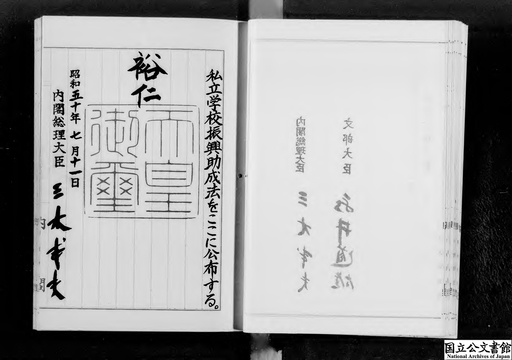 私立学校振興助成法をここに公布する。
裕仁
天皇
御璽
昭和五十年七月十一日
内閣総理大臣 三木武夫
内閣
文部大臣 永井道雄
内閣総理大臣 三木武夫
国立公文書館
National Archives of Japan